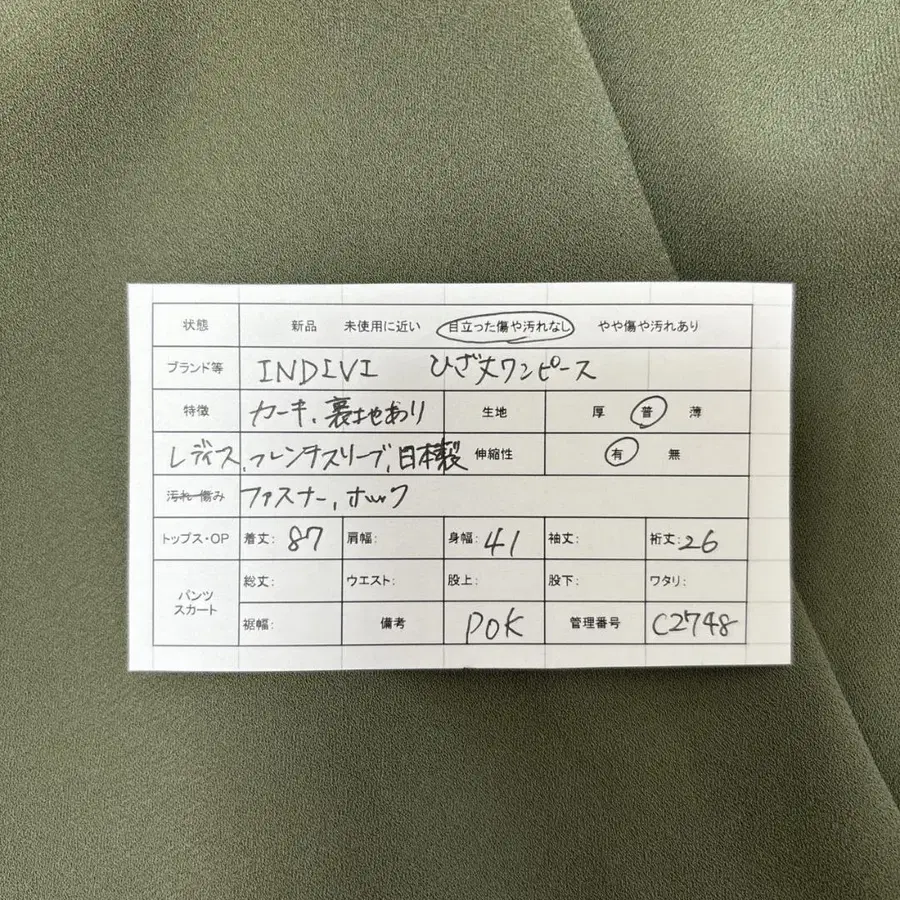 状態 新品 未使用に近い 目立った傷や汚れなし やや傷や汚れあり
ブランド等 INDIVI ひざ丈ワンピース
特徴 カーキ、裏地あり 生地 厚 普 薄
レディス、フレンチスリーブ、日本製 伸縮性 有 無
汚れ・傷み ファスナー、ホック
トップス・OP 着丈: 87 肩幅: 身幅: 41 袖丈: 裄丈: 26
パンツ スカート 総丈: ウエスト: 股上: 股下: ワタリ:
裾幅: 備考 POK 管理番号 C2748